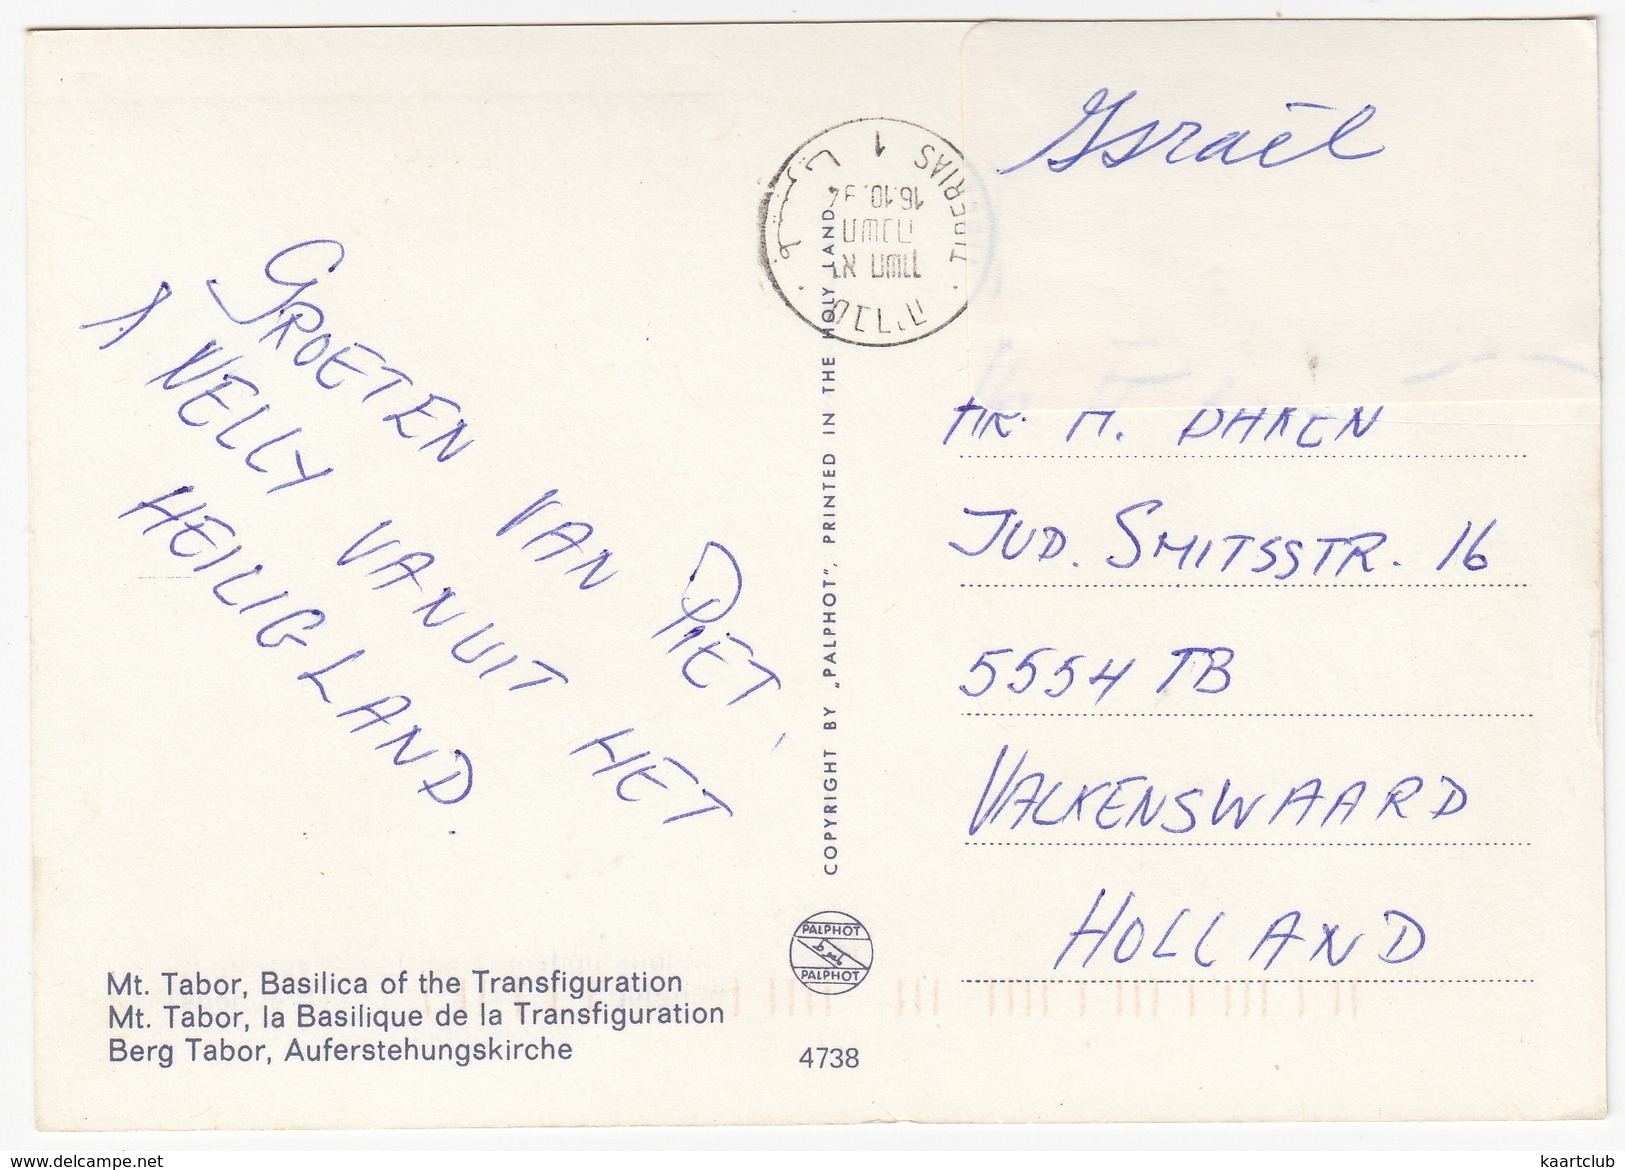 Israël
טבריה
TIBERIAS 1
16.10.94
GROETEN VAN PIET,
A NELLY VANUIT HET
HEILIG LAND.
HR. M. DAKEN
JUD. SMITSSTR. 16
5554 TB
VALKENSWAARD
HOLLAND
COPYRIGHT BY „PALPHOT", PRINTED IN THE HOLY LAND
PALPHOT
PALPHOT
Mt. Tabor, Basilica of the Transfiguration
Mt. Tabor, la Basilique de la Transfiguration
Berg Tabor, Auferstehungskirche
4738
www.delcampe.net
kaartclub